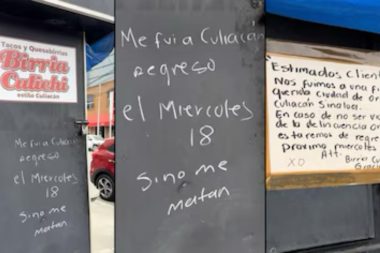 Tacos y Quesabirrias
Birria
Culichi
estilo Culiacán
Me fui a Culiacan
regreso
el Miercoles
18
si no me
matan
Me fui a Culiacán
regreso
el Miercoles
18
si no me
matan
Estimados Clien
Nos fuimos a una fi
querida ciudad de or
Culiacan Sinaloa.
En caso de no ser vi
de la delincuencia or
estaremos de regre
proximo miercoles
Att:
Birria Cu
XO
Graci